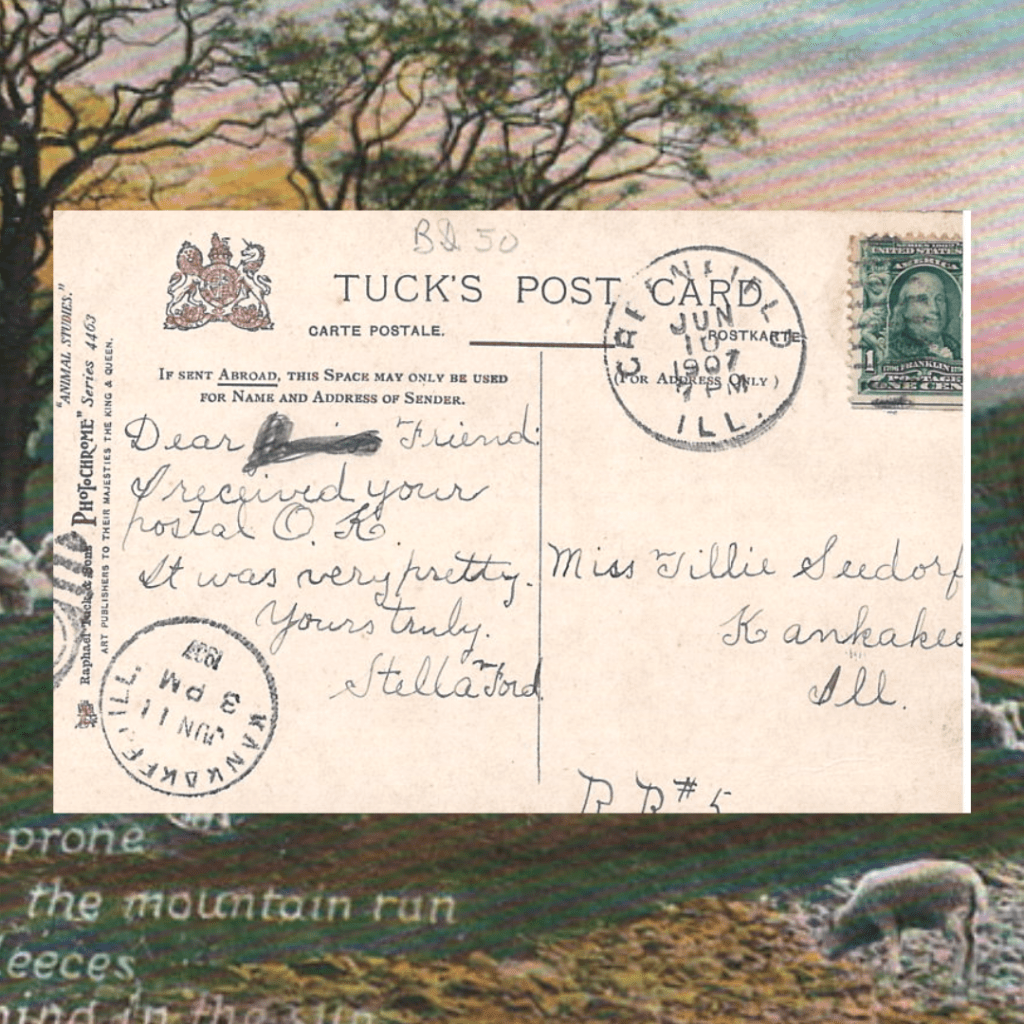 B2 50
TUCK'S POST CARD
CARTE POSTALE.
POSTKARTE
IF SENT ABROAD, THIS SPACE MAY ONLY BE USED
FOR NAME AND ADDRESS OF SENDER.
(FOR ADDRESS ONLY)
GREENFIELD
JUN
10
1907
7 PM
ILL.
SERIES 1902
UNITED STATES
AMERICA
1
FRANKLIN
POSTAGE
ONE CEN
"ANIMAL STUDIES."
Raphael Tuck & Sons "PHOTOCHROME" Series 4463
ART PUBLISHERS TO THEIR MAJESTIES THE KING & QUEEN.
Dear Friend:
I received your
postal O. K.
It was very pretty.
Yours truly.
Stella Ford.
Miss Tillie Seedorf
Kankakee
Ill.
R R # 5
KANKAKEE, ILL.
JUN 11
3 PM
1907
prone
the mountain run
leeces
ning in the sun